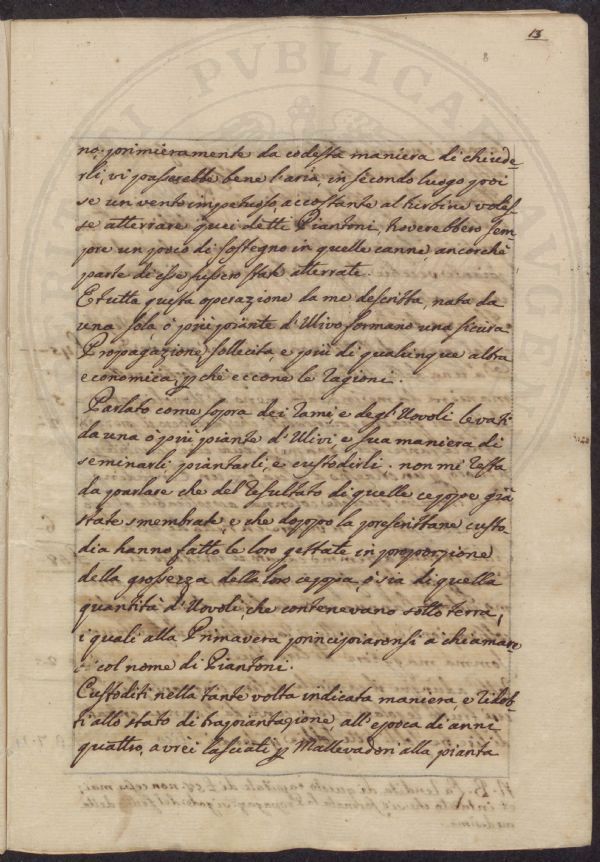 13
8
no, primieramente da codesta maniera di chiude=
rli, vi passarebbe bene l'aria, in secondo luogo poi
se un vento impetuoso, accostante al turbine voles=
se atterrare quei detti Piantoni, troverebbero sem
pre un poco di sostegno in quelle canne, ancorchè
parte di esse fussero state atterrate.
E tutta questa operazione da me descritta, nata da
una sola, ò più piante d'Ulivo formano una sicura
Propagazione sollecita, e più di qualunque altra
economica, p chè eccone le ragioni.
Parlato come sopra dei rami, e degl'Uovoli levati
da una ò più piante d'Ulivi, e sua maniera di
seminarli, piantarli, e custodirli. non mi resta
da parlare che del resultato di quelle ceppe già
state smembrate, e che doppo la prescrittane custo=
dia hanno fatto le loro gettate in proporzione
della grossezza della loro ceppia, ò sia di quella
quantità d'Uovoli, che contenevano sotto terra,
i quali alla Primavera principiaronsi à chiamare
col nome di Piantoni.
Custoditi nella tante volta indicata maniera, e ridot=
ti allo stato di trapiantazione, all'epoca di anni
quattro, avrei lasciati p Mallevadori alla pianta